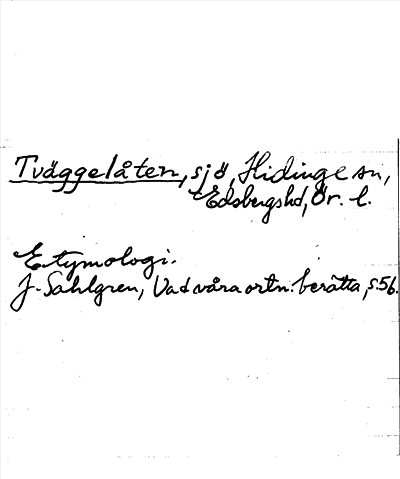 Tväggelåten, sjö, Hidinge sn,
Edsbergshd, Ör. l.
Etymologi.
J. Sahlgren, Vad våra ortn. berätta, s. 56.